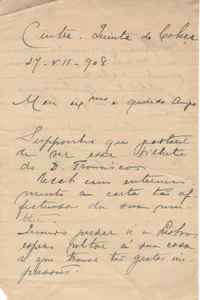 Cintra. Quinta do Cobre
27-VII-908
Meu ex mo e querido Amigo
Supponho que gostará
de ver esse bilhete
do D. Francisco.
Recebi com enterneci
mento a carta tão af
fectuosa da sua
Iremos passar
voltar á sua casa
e que trouxe tão gratas im
pressões.